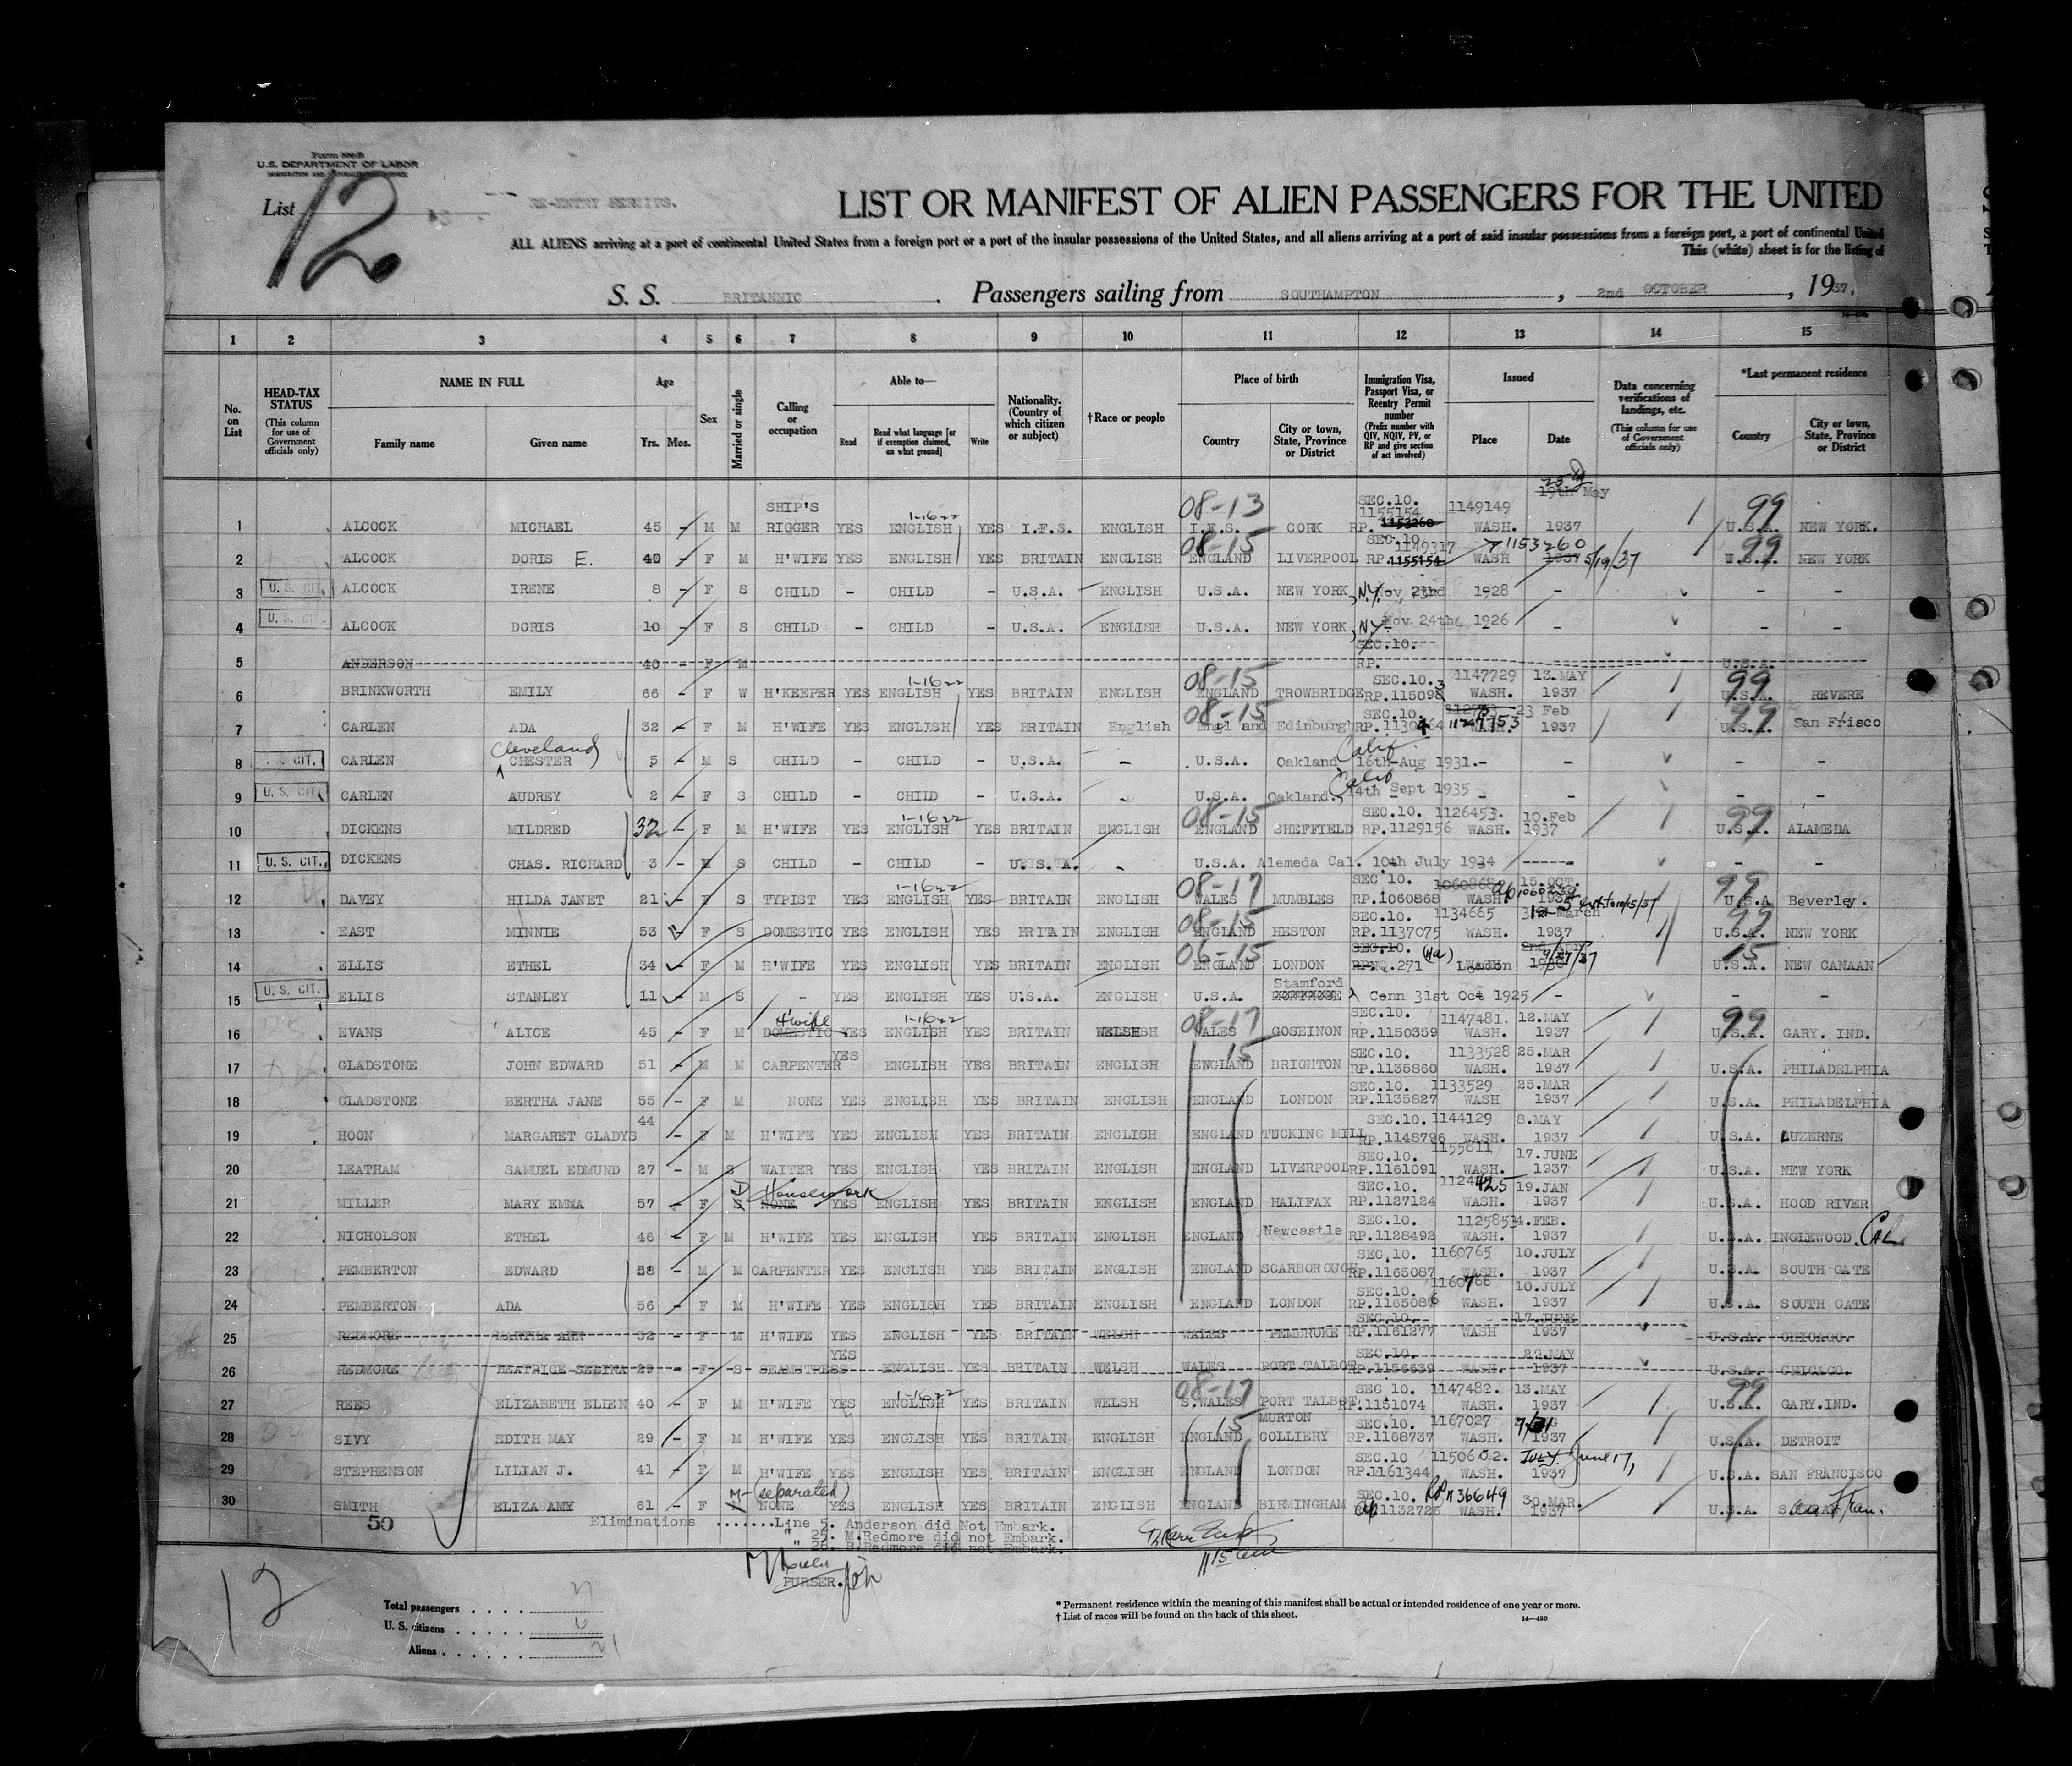 Form 500-B
U.S. DEPARTMENT OF LABOR
IMMIGRATION AND NATURALIZATION SERVICE
List 12
RE-ENTRY PERMITS.
LIST OR MANIFEST OF ALIEN PASSENGERS FOR THE UNITED
ALL ALIENS arriving at a port of continental United States from a foreign port or a port of the insular possessions of the United States, and all aliens arriving at a port of said insular possessions from a foreign port, a port of continental United
This (white) sheet is for the listing of
S. S. BRITANNIC. Passengers sailing from SOUTHAMPTON, 2nd OCTOBER, 1937,
1 2 3 4 5 6 7 8 9 10 11 12 13 14 15
No. on List
HEAD-TAX STATUS
(This column for use of Government officials only)
NAME IN FULL
Family name Given name
Age
Yrs. Mos.
Sex
Married or single
Calling or occupation
Able to—
Read
Read what language [or if exemption claimed, on what ground]
Write
Nationality. (Country of which citizen or subject)
†Race or people
Place of birth
Country
City or town, State, Province or District
Immigration Visa, Passport Visa, or Reentry Permit number
(Prefix number with QIV, NQIV, PV, or RP and give section of act involved)
Issued
Place Date
Data concerning verifications of landings, etc.
(This column for use of Government officials only)
*Last permanent residence
Country
City or town, State, Province or District
1 ALCOCK MICHAEL 45 - M M SHIP'S RIGGER YES ENGLISH 1-1622 YES I.F.S. ENGLISH 08-13 I.F.S. CORK SEC.10. 1155154 RP. 1153260 1149149 WASH. 19th May 1937 99 U.S.A. NEW YORK.
2 ALCOCK DORIS E. 40 - F M H'WIFE YES ENGLISH YES BRITAIN ENGLISH 08-15 ENGLAND LIVERPOOL SEC.10. 1149317 RP.1155154 1153260 WASH 1937 5/19/37 99 U.S.A. NEW YORK
3 U. S. CIT. ALCOCK IRENE 8 - F S CHILD - CHILD - U.S.A. ENGLISH U.S.A. NEW YORK, N.Y. Nov 23rd 1928 - - -
4 U. S. CIT. ALCOCK DORIS 10 - F S CHILD - CHILD - U.S.A. ENGLISH U.S.A. NEW YORK, NY Nov 24th 1926 - - -
5 ANDERSON 40 - F M SEC.10. RP. U.S.A.
6 BRINKWORTH EMILY 66 - F W H'KEEPER YES ENGLISH 1-1622 YES BRITAIN ENGLISH 08-15 ENGLAND TROWBRIDGE SEC.10. RP.115098 3 1147729 WASH. 13.MAY 1937 99 U.S.A. REVERE
7 CARLEN ADA 32 - F M H'WIFE YES ENGLISH YES BRITAIN English 08-15 England Edinburgh SEC.10. 1127753 WASH. 23 Feb 1937 99 U.S.A. San Frisco
8 U. S. CIT. CARLEN Cleveland CHESTER 5 - M S CHILD - CHILD - U.S.A. - U.S.A. Oakland Calif. 16th Aug 1931.- - -
9 U. S. CIT. CARLEN AUDREY 2 - F S CHILD - CHILD - U.S.A. - U.S.A. Oakland. Calif 14th Sept 1935 - - -
10 DICKENS MILDRED 32 - F M H'WIFE YES ENGLISH 1-1622 YES BRITAIN ENGLISH 08-15 ENGLAND SHEFFIELD SEC.10. RP.1129156 1126453. WASH. 10.Feb 1937 99 U.S.A. ALAMEDA
11 U. S. CIT. DICKENS CHAS. RICHARD 3 - M S CHILD - CHILD - U.S.A. - U.S.A. Alemeda Cal. 10th July 1934 ----- - -
12 DAVEY HILDA JANET 21 F S TYPIST YES ENGLISH 1-1622 YES BRITAIN ENGLISH 08-17 WALES MUMBLES SEC 10. RP.1060868 WASH 15.OCT. 1935 ext to 10/15/37 99 U.S.A Beverley.
13 EAST MINNIE 53 F S DOMESTIC YES ENGLISH YES BRITAIN ENGLISH 08-15 ENGLAND HESTON SEC.10. RP.1137075 1134665 WASH. March 1937 99 U.S.A. NEW YORK
14 ELLIS ETHEL 34 - F M H'WIFE YES ENGLISH YES BRITAIN ENGLISH 06-15 ENGLAND LONDON SEC.10. (4a) NQ.271 London 9/27/37 15 U.S.A. NEW CANAAN
15 U. S. CIT. ELLIS STANLEY 11 - M S - YES ENGLISH YES U.S.A. ENGLISH U.S.A. Stamford Conn 31st Oct 1925 - - -
16 EVANS ALICE 45 - F M H'wife DOMESTIC YES ENGLISH 1-1622 YES BRITAIN WELSH 08-17 WALES GOSEINON SEC.10. RP.1150359 1147481. WASH. 12.MAY 1937 99 U.S.A. GARY. IND.
17 GLADSTONE JOHN EDWARD 51 - M M CARPENTER YES ENGLISH YES BRITAIN ENGLISH 15 ENGLAND BRIGHTON SEC.10. RP.1135860 1133528 WASH. 25.MAR 1937 U.S.A. PHILADELPHIA
18 GLADSTONE BERTHA JANE 55 - F M NONE YES ENGLISH YES BRITAIN ENGLISH ENGLAND LONDON SEC.10. RP.1135827 1133529 WASH 25.MAR 1937 U.S.A. PHILADELPHIA
19 HOON MARGARET GLADYS 44 - F M H'WIFE YES ENGLISH YES BRITAIN ENGLISH ENGLAND TUCKING MILL SEC.10. RP.1148796 1144129 WASH. 8.MAY 1937 U.S.A. LUZERNE
20 LEATHAM SAMUEL EDMUND 27 - M S WAITER YES ENGLISH YES BRITAIN ENGLISH ENGLAND LIVERPOOL SEC.10. RP.1161091 1155811 WASH. 17.JUNE 1937 U.S.A. NEW YORK
21 MILLER MARY EMMA 57 - F D S Housework NONE YES ENGLISH YES BRITAIN ENGLISH ENGLAND HALIFAX SEC.10. RP.1127124 1124425 WASH. 19.JAN 1937 U.S.A. HOOD RIVER
22 NICHOLSON ETHEL 46 - F M H'WIFE YES ENGLISH YES BRITAIN ENGLISH ENGLAND Newcastle SEC.10. RP.1128492 1125853 WASH. 4.FEB. 1937 U.S.A. INGLEWOOD. CAL.
23 PEMBERTON EDWARD 58 - M M CARPENTER YES ENGLISH YES BRITAIN ENGLISH ENGLAND SCARBOROUGH SEC.10. RP.1165087 1160765 WASH. 10.JULY 1937 U.S.A. SOUTH GATE
24 PEMBERTON ADA 56 - F M H'WIFE YES ENGLISH YES BRITAIN ENGLISH ENGLAND LONDON SEC.10. RP.1165086 1160766 WASH. 10.JULY 1937 U.S.A. SOUTH GATE
25 REDMORE MARTHA ANN 52 - F M H'WIFE YES ENGLISH YES BRITAIN WELSH WALES PEMBROKE SEC.10. RP.1161277 WASH 17.JUNE 1937 U.S.A. CHICAGO.
26 REDMORE BEATRICE SELINA 29 - F S SEAMSTRESS YES ENGLISH YES BRITAIN WELSH WALES PORT TALBOT RP.1156639 WASH. 22.MAY 1937 U.S.A. CHICAGO.
27 REES ELIZABETH ELLEN 40 - F M H'WIFE YES ENGLISH 1-1622 YES BRITAIN WELSH 08-17 S.WALES PORT TALBOT SEC 10. RP.1151074 1147482. WASH. 13.MAY 1937 99 U.S.A. GARY.IND.
28 SIVY EDITH MAY 29 - F M H'WIFE YES ENGLISH YES BRITAIN ENGLISH 15 ENGLAND MURTON COLLIERY SEC.10. RP.1168737 1167027 WASH. 7/31 1937 U.S.A. DETROIT
29 STEPHENSON LILIAN J. 41 - F M H'WIFE YES ENGLISH YES BRITAIN ENGLISH ENGLAND LONDON SEC.10 RP.1161344 1150602. WASH. JULY 1937 June 17, U.S.A. SAN FRANCISCO
30 SMITH ELIZA AMY 61 - F M-(separated) NONE YES ENGLISH YES BRITAIN ENGLISH ENGLAND BIRMINGHAM SEC.10. 1132726 RP1136649 WASH. 30.MAR. 1937 U.S.A San Fran.
50
Eliminations .......Line 5. Anderson did Not Embark.
" 25. M.Redmore did not Embark.
" 26. B.Redmore did not Embark.
PURSER.
12
Total passengers . . . . 27
U. S. citizens . . . . . 6
Aliens . . . . . . 21
* Permanent residence within the meaning of this manifest shall be actual or intended residence of one year or more.
† List of races will be found on the back of this sheet.
14—430